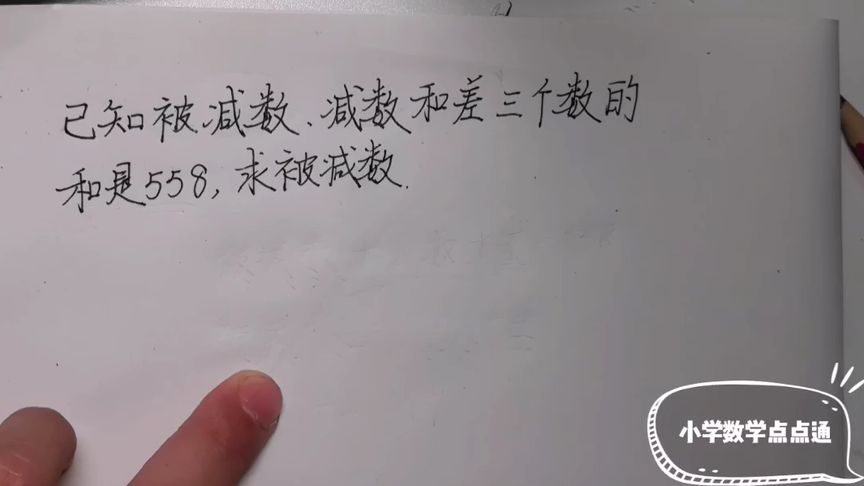 已知被减数、减数和差三个数的
和是558,求被减数.
小学数学点点通